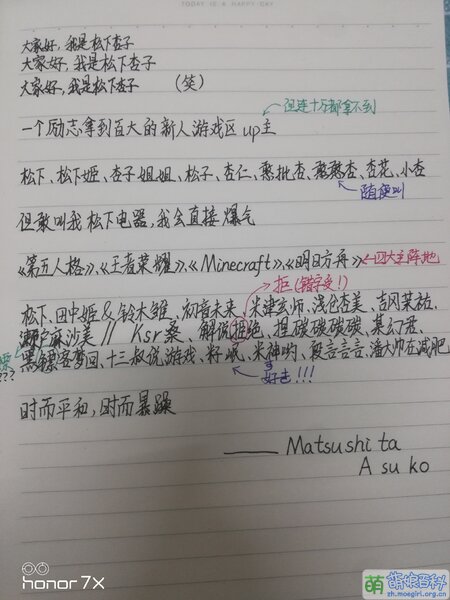 TODAY IS A HAPPY DAY
大家好，我是松下杏子
大家好，我是松下杏子
大家好，我是松下杏子 （笑）
但连十万都拿不到
一个励志拿到百大的新人游戏区up主
松下、松下姬、杏子姐姐、松子、杏仁、憨批杏、憨憨杏、杏花、小杏
随便叫
但敢叫我松下电器，我会直接爆气
《第五人格》、《王者荣耀》、《Minecraft》、《明日方舟》←四大主阵地
拒（错字受！）
松下、田中姬&铃木雏、初音未来、米津玄师、浅仓杏美、吉冈茉祐、
濑户麻沙美 // Ksr桑、解说拒绝、担碳碳碳碳、某幻君、
黑镖客梦回、十三叔说游戏、籽岷、米神哟、殷言言言、潘大帅在减肥
???
好击!!!
时而平和，时而暴躁
—— Matsushita
Asuko
honor 7X
萌娘百科
zh.moegirl.org.cn